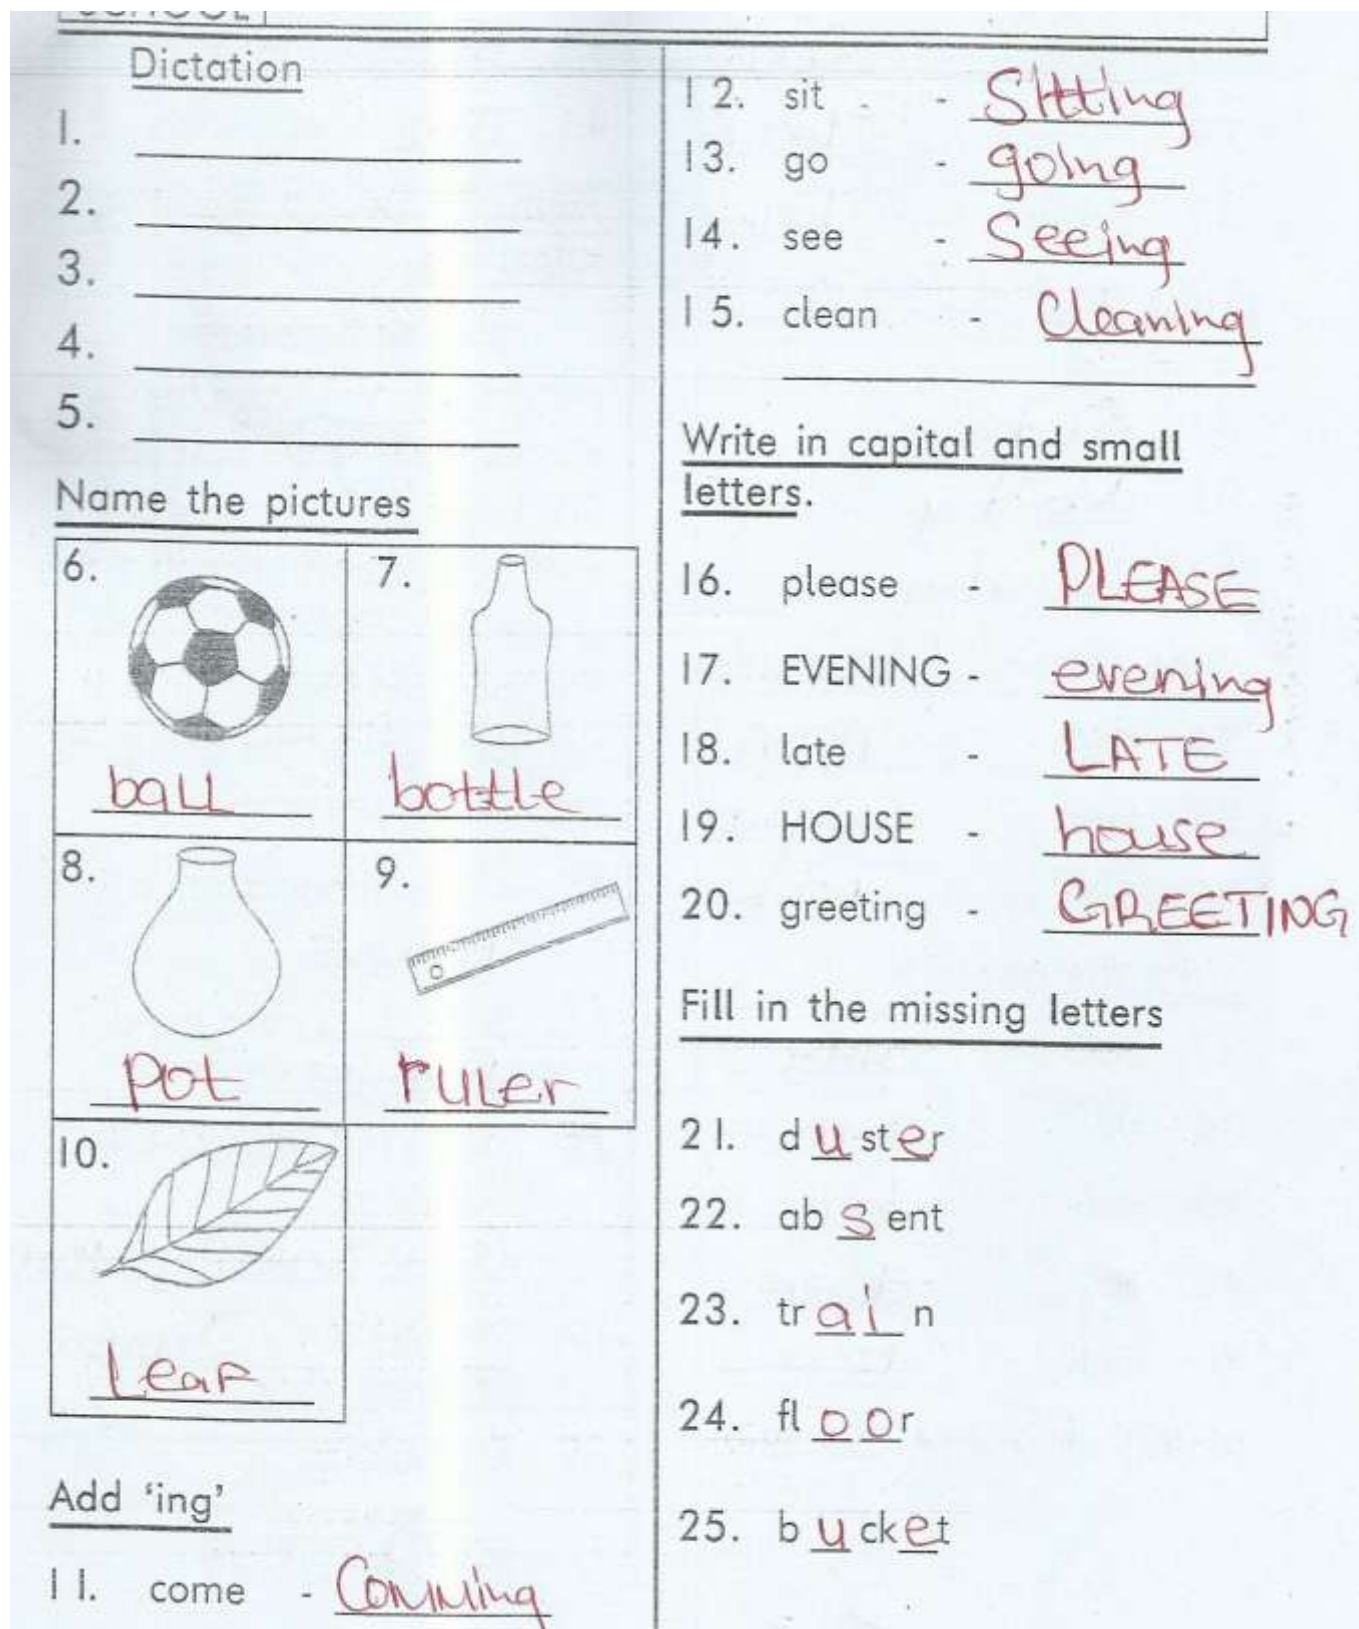 SCHOOL
Dictation
1.
2.
3.
4.
5.
Name the pictures
6.
7.
ball
bottle
8.
9.
pot
ruler
10.
Leaf
Add ‘ing’
11. come - Comming
12. sit - Sitting
13. go - going
14. see - Seeing
15. clean - Cleaning
Write in capital and small
letters.
16. please - PLEASE
17. EVENING - evening
18. late - LATE
19. HOUSE - house
20. greeting - GREETING
Fill in the missing letters
21. duster
22. absent
23. train
24. floor
25. bucket